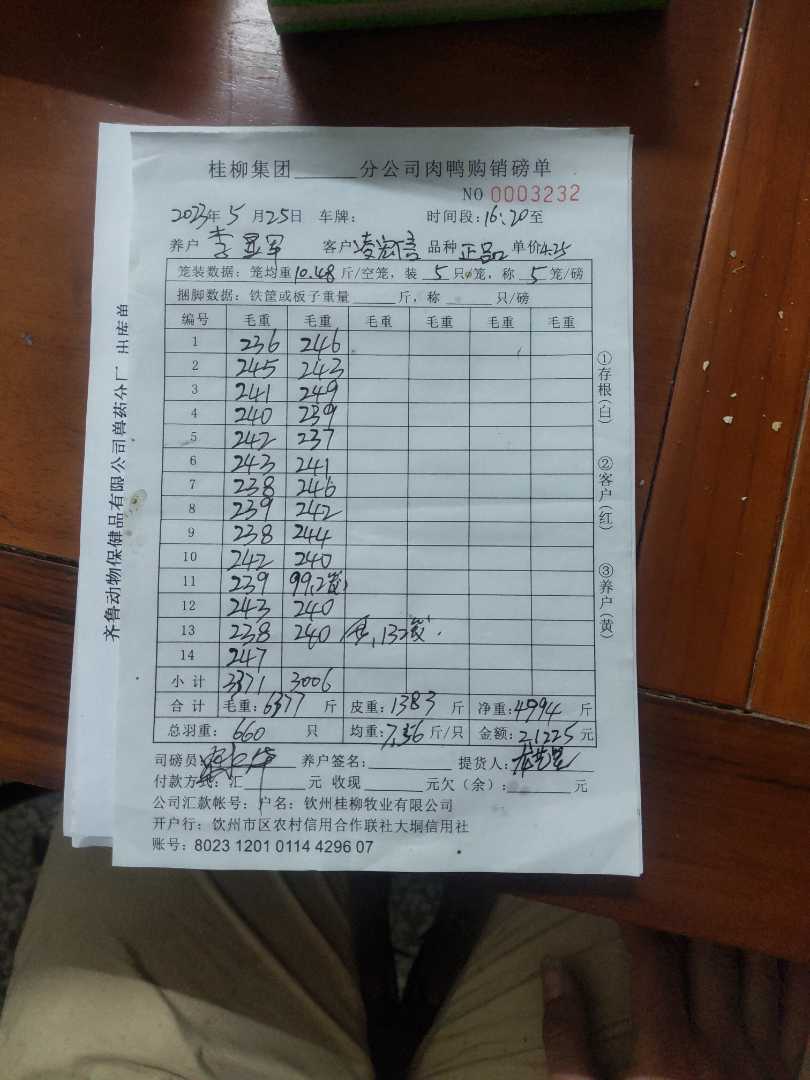 桂柳集团______分公司肉鸭购销磅单
NO 0003232
2023年5月25日 车牌: 时间段:16:20至
养户 李显军 客户 凌宏信 品种 正品 单价4.25
笼装数据: 笼均重10.48斤/空笼, 装 5 只/笼, 称 5 笼/磅
捆脚数据: 铁筐或板子重量______斤, 称______只/磅
编号 毛重 毛重 毛重 毛重 毛重 毛重
1 236 246
2 245 243
3 241 249
4 240 239
5 242 237
6 243 241
7 238 246
8 239 242
9 238 244
10 242 240
11 239 99,2笼)
12 243 240
13 238 240 132笼.
14 247
小计 3371 3006
合计 毛重:6377 斤 皮重:1383 斤 净重:4994 斤
总羽重: 660 只 均重:7.56斤/只 金额:21225元
司磅员: 养户签名:________ 提货人:
付款方式: 汇______元 收现______元欠(余):______元
公司汇款帐号: 户名: 钦州桂柳牧业有限公司
开户行: 钦州市区农村信用合作联社大垌信用社
账号: 8023 1201 0114 4296 07
①存根(白)
②客户(红)
③养户(黄)
齐鲁动物保健品有限公司兽药分厂 出库单